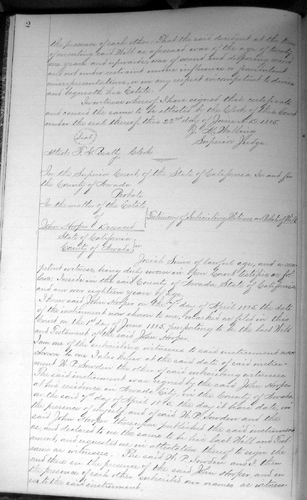 2
the presence of each other. That the said decedent at the time
of executing said Will as aforesaid was of the age of twenty
one years and upwards, was of sound and disposing mind
and not under restraint undue influence or fraudulent
misrepresentation, or in any respect incompetent to devise
and bequeath his Estate.
In witness whereof I have signed this certificate
and caused the same to be attested by the Clerk of this Court
under the seal thereof this 22nd day of June A.D. 1885.
(Seal)
Superior Judge
Attest Clerk
In the Superior Court of the State of California in and for
the County of Nevada
Probate
In the matter of the Estate
of
John Deceased
Testimony of Subscribing Witness on Probate of Will
State of California
County of Nevada
of lawful age, and a com-
petent witness, being duly sworn in Open Court testifies as fol-
lows: I reside in the said County of Nevada, State of California
and was over eighteen years of age
I knew said John on the 7th day of April 1885, the date
of the instrument now shown to me, marked as filed in this
Court on the 1st day of June 1885, purporting to be the last Will
and Testament of the said John
I am one of the subscribing witnesses to said instrument now
shown to me. I also knew at the said date of said instru-
ment W. P. the other of said subscribing witnesses
The said instrument was signed by the said John
at his residence in Nevada City, in the County of Nevada
on the said 7th day of April 1885, the day it bears date, in
the presence of myself and of said W. P. and the
said John thereupon published the said instrument
as, and declared to us the same to be his last Will and Testa-
ment, and requested me and the other thereof to sign the
same as witnesses. The said W. P. and I then
and there in the presence of the said John and in
the presence of each other subscribed our names as witness-
es to the said instrument.